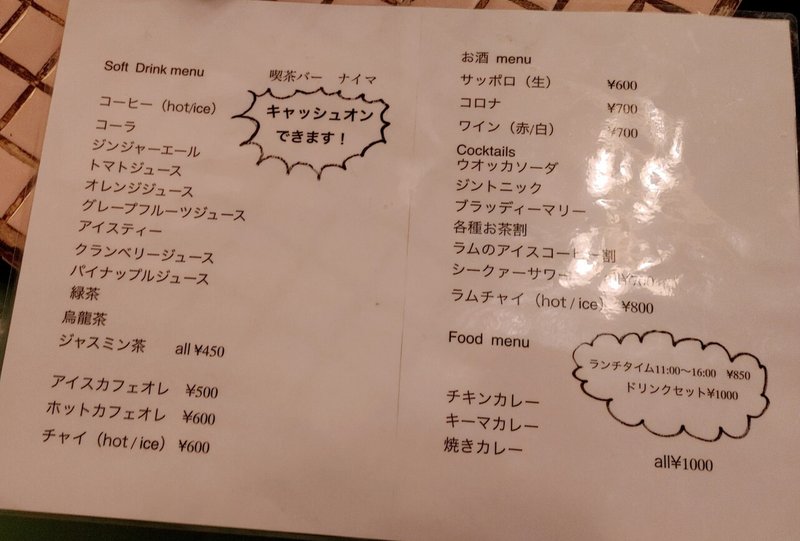 Soft Drink menu
喫茶バー ナイマ
キャッシュオン
できます！
コーヒー（hot/ice）
コーラ
ジンジャーエール
トマトジュース
オレンジジュース
グレープフルーツジュース
アイスティー
クランベリージュース
パイナップルジュース
緑茶
烏龍茶
ジャスミン茶 all ¥450
アイスカフェオレ ¥500
ホットカフェオレ ¥600
チャイ（hot / ice） ¥600
お酒 menu
サッポロ（生） ¥600
コロナ ¥700
ワイン（赤/白） ¥700
Cocktails
ウオッカソーダ
ジントニック
ブラッディーマリー
各種お茶割
ラムのアイスコーヒー割
シークァーサワー
ラムチャイ（hot / ice） ¥800
Food menu
ランチタイム11:00〜16:00 ¥850
ドリンクセット¥1000
チキンカレー
キーマカレー
焼きカレー
all¥1000